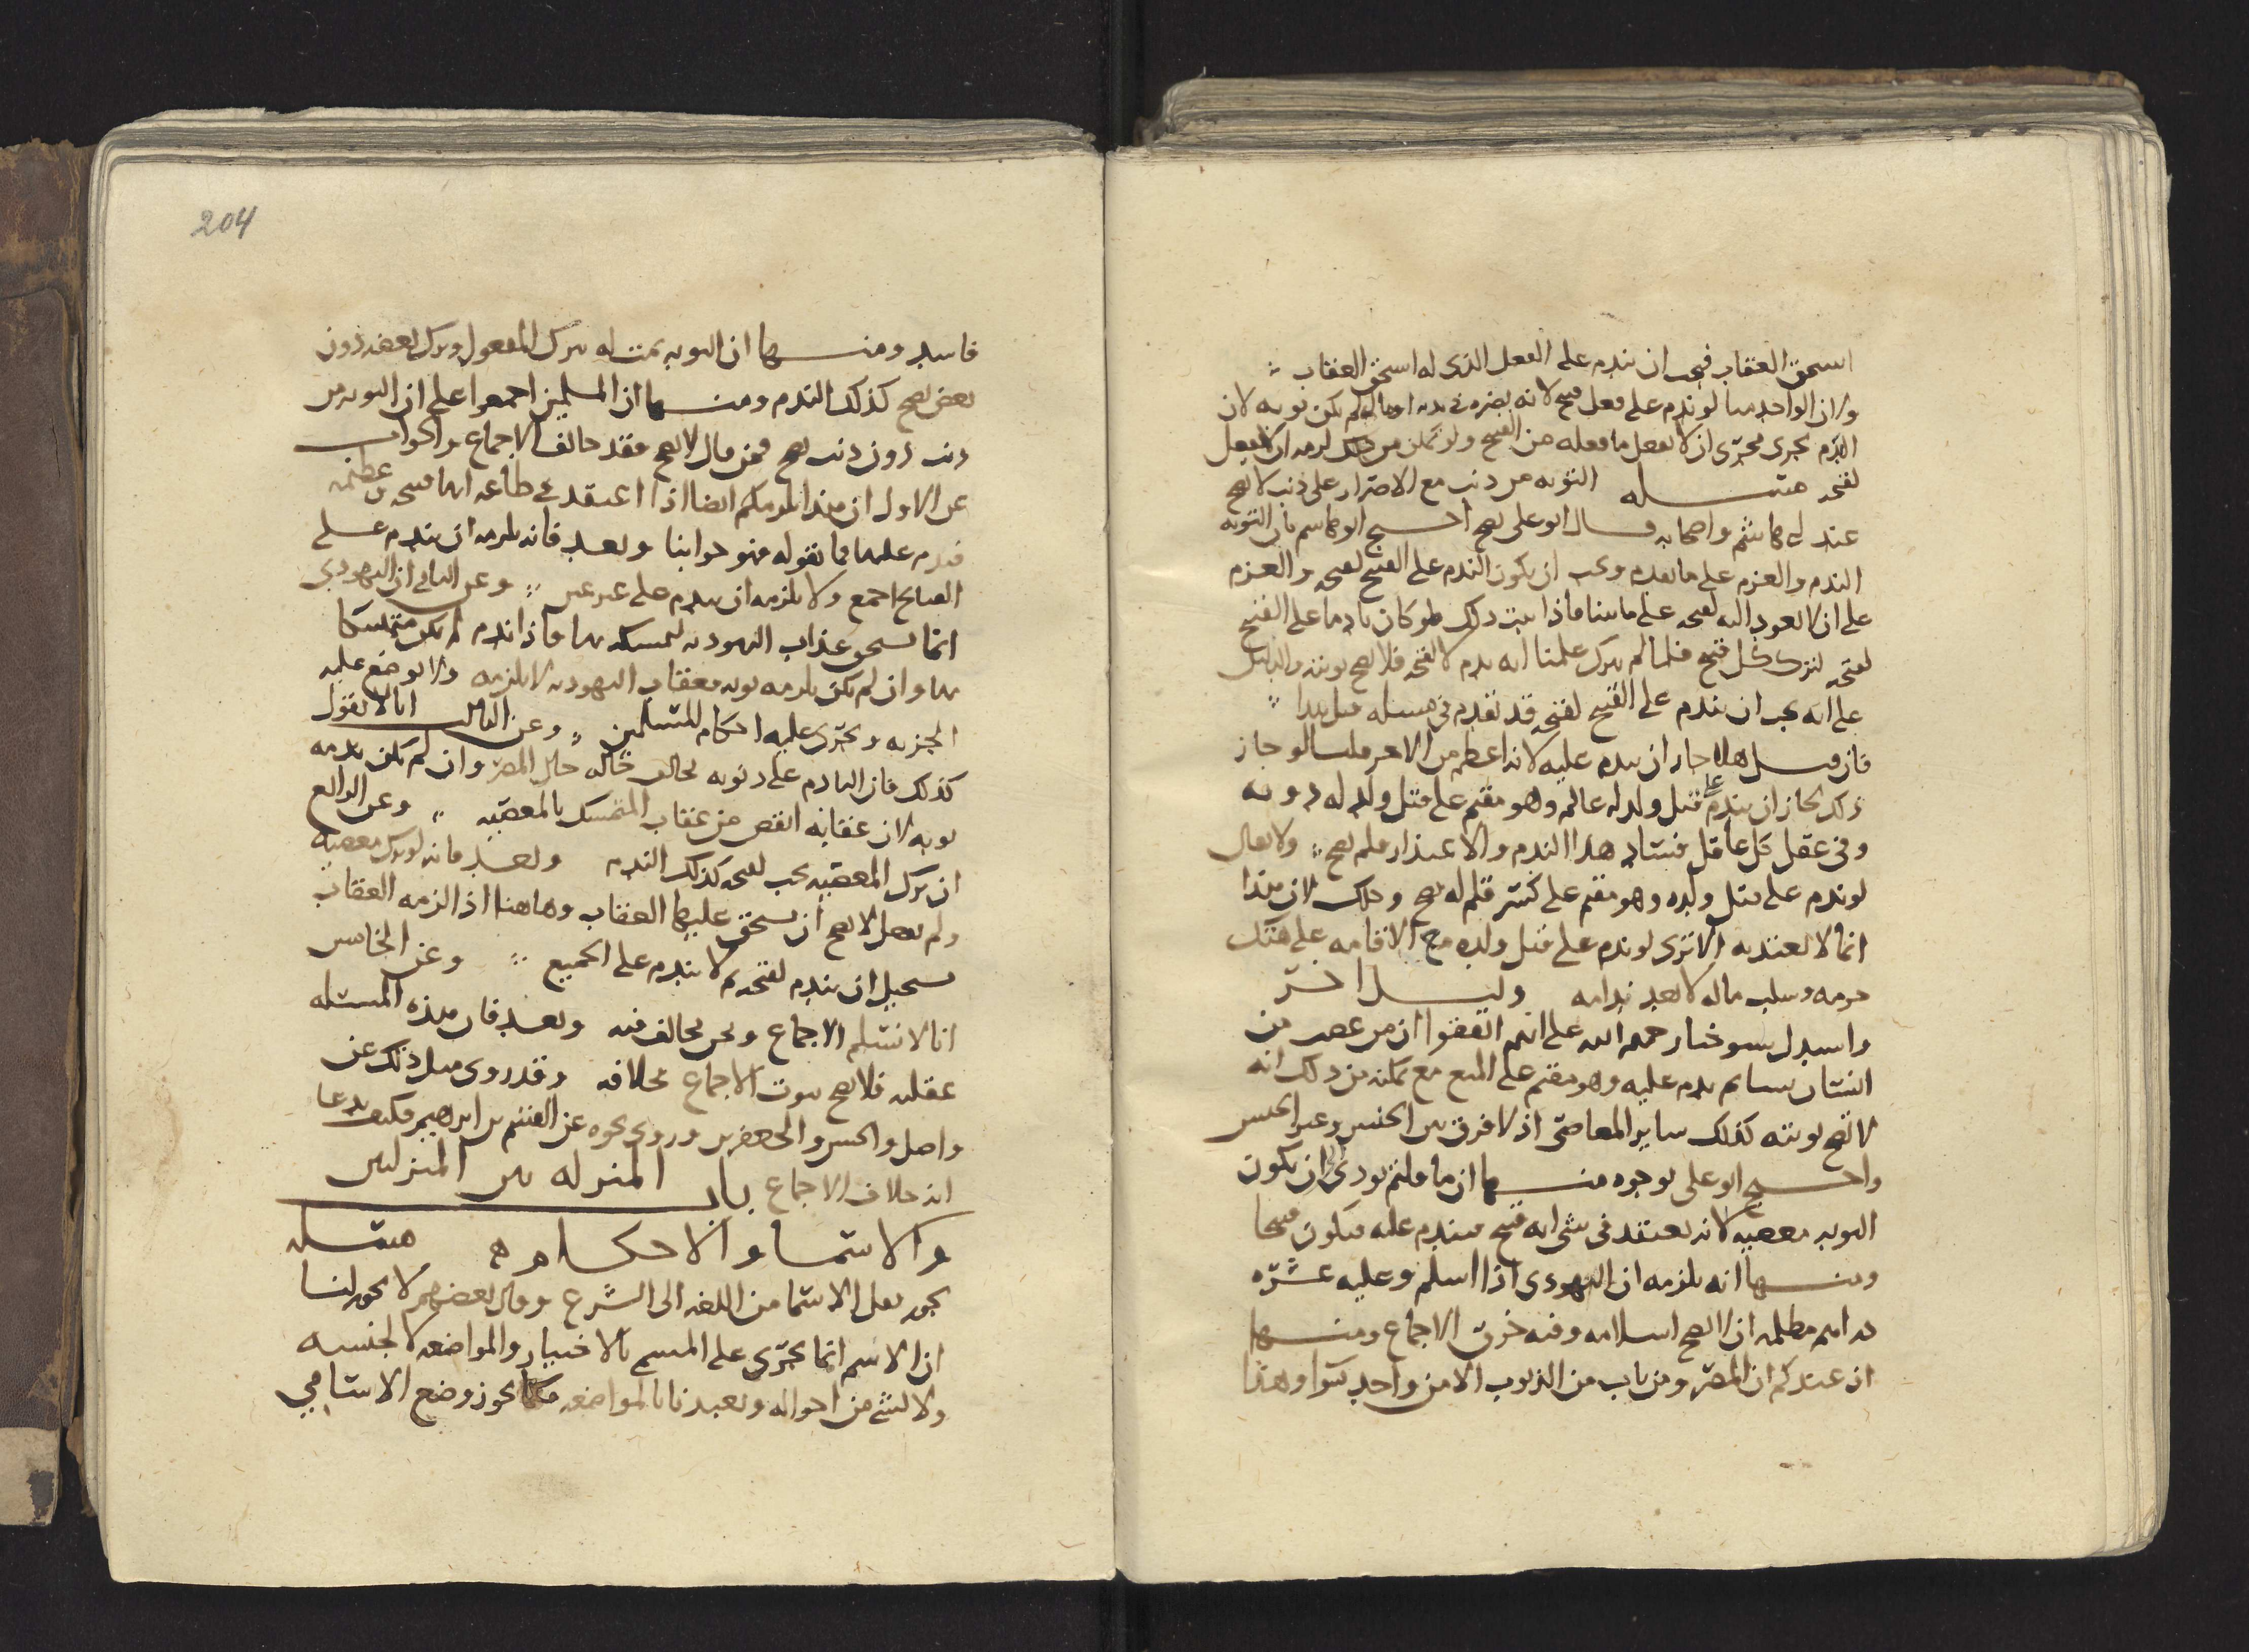 استحق العقاب فيجب ان يندم على الفعل الذي له استحق العقاب
ولان الواحد منا لو ندم على فعل قبيح لانه يضره في بدنه او ماله لم يكن توبه لان
الندم يجري مجرى ان لا يفعل ما فعله من القبيح ولو تمكن من ذلك لزمه ان لا يفعل
لقبحه مسله التوبه من ذنب مع الاصرار على ذنب لا يصح
عند ابي هاشم واصحابه وقال ابو على يصح احتج ابو هاشم بان التوبه
الندم والعزم على ما تقدم ويجب ان يكون الندم على القبيح لقبحه والعزم
على ان لا يعود اليه لقبحه على ما بينا فاذا ثبت ذلك فلو كان نادما على القبيح
لقبحه لترك كل قبيح فلما لم يترك علمنا انه ندم لا لقبحه فلا يصح توبته والدليل
على انه يجب ان يندم على القبيح لقبحه قد تقدم في مسله قبل هذا
فان قيل هلا جاز ان يندم عليه لانه اعظم من الاخر قلنا لو جاز
ذلك لجاز ان يندم على قتل ولد له عالم وهو مقيم على قتل ولد له دونه
وفي عقل كل عاقل فساد هذا الندم والاعتذار فلم يصح ولا يقال
لو ندم على قتل ولده وهو مقيم على كسر قلم له يصح وذلك لان هذا
انما لا يعتد به الا ترى لو ندم على قتل ولده مع الاقامه على هتك
حرمه وسلب ماله لا يعد ندامه دليل اخر
واستدل شيوخنا رحمهم الله على انهم اتفقوا ان من غصب من
انسان بستانا ثم ندم عليه وهو مقيم على المنع مع تمكنه من ذلك انه
لا تصح توبته كذلك ساير المعاصي اذ لا فرق بين الجنس وغير الجنس
واحتج ابو على بوجوه منها ان ما قلتم يودي الى ان يكون
التوبه معصيه لانه يعتقد في شي انه قبيح فيندم عليه فيكون قبيحا
ومنها انه يلزمه ان اليهودي اذا اسلم وعليه عشره
دراهم مظلمه ان لا يصح اسلامه وفيه خرق الاجماع ومنها
ان عندكم ان المصر ومن تاب من الذنوب الا من واحد سوا وهذا
204
فاسد ومنها ان التوبه بمنزله ترك المفعول وترك بعضه دون
بعض يصح كذلك الندم ومنها ان المسلمين اجمعوا على ان التوبه من
ذنب دون ذنب يصح فمن قال لا يصح فقد خالف الاجماع والجواب
عن الاول ان هذا يلزمكم ايضا اذا اعتقد في طاعه انها قبيحه عظيمه
فندم عليها فما تقوله فهو جوابنا وبعد فانه يلزمه ان يندم على
القبايح اجمع ولا يلزمه ان يندم على غير غير وعن الثاني ان اليهودي
انما يستحق عذاب اليهوديه لتمسكه بها فاذا ندم لم يكن متمسكا
بها وان لم يكن يلزمه توبه فعقاب اليهوديه لا يلزمه ولا توضع عليه
الجزيه ويجرى عليه احكام المسلمين وعن الثالث انا لا نقول
كذلك فان النادم على ذنوبه يخالف حاله حال المصر وان لم يكن ندمه
توبه لان عقابه انقص من عقاب المتمسك بالمعصيه وعن الرابع
ان ترك المعصيه يجب لقبحه كذلك الندم وبعد فانه لو ترك معصيه
ولم يفعل لا يصح ان يستحق عليها العقاب وهاهنا اذا لزمه العقاب
يستحيل ان يندم لقبحه ثم لا يندم على الجميع وعن الخامس
انا لا نسلم الاجماع ونحن نخالف فيه وبعد فان هذه المسله
عقليه فلا يصح ثبوت الاجماع بخلافه وقد روي مثل ذلك عن
واصل والحسن والجعفرين وروي نحوه عن القسم بن ابراهيم فكيف يدعا
انه خلاف الاجماع باب المنزله بين المنزلتين
والاسما والاحكام مسله
يجوز نقل الاسما من اللغه الى الشرع وقال بعضهم لا يجوز لنا
ان الاسم انما يجري على المسمى بالاختيار والمواضعه لا لجنسه
ولا لشي من احواله وتعبدنا بالمواضعه فكما يجوز وضع الاسامي